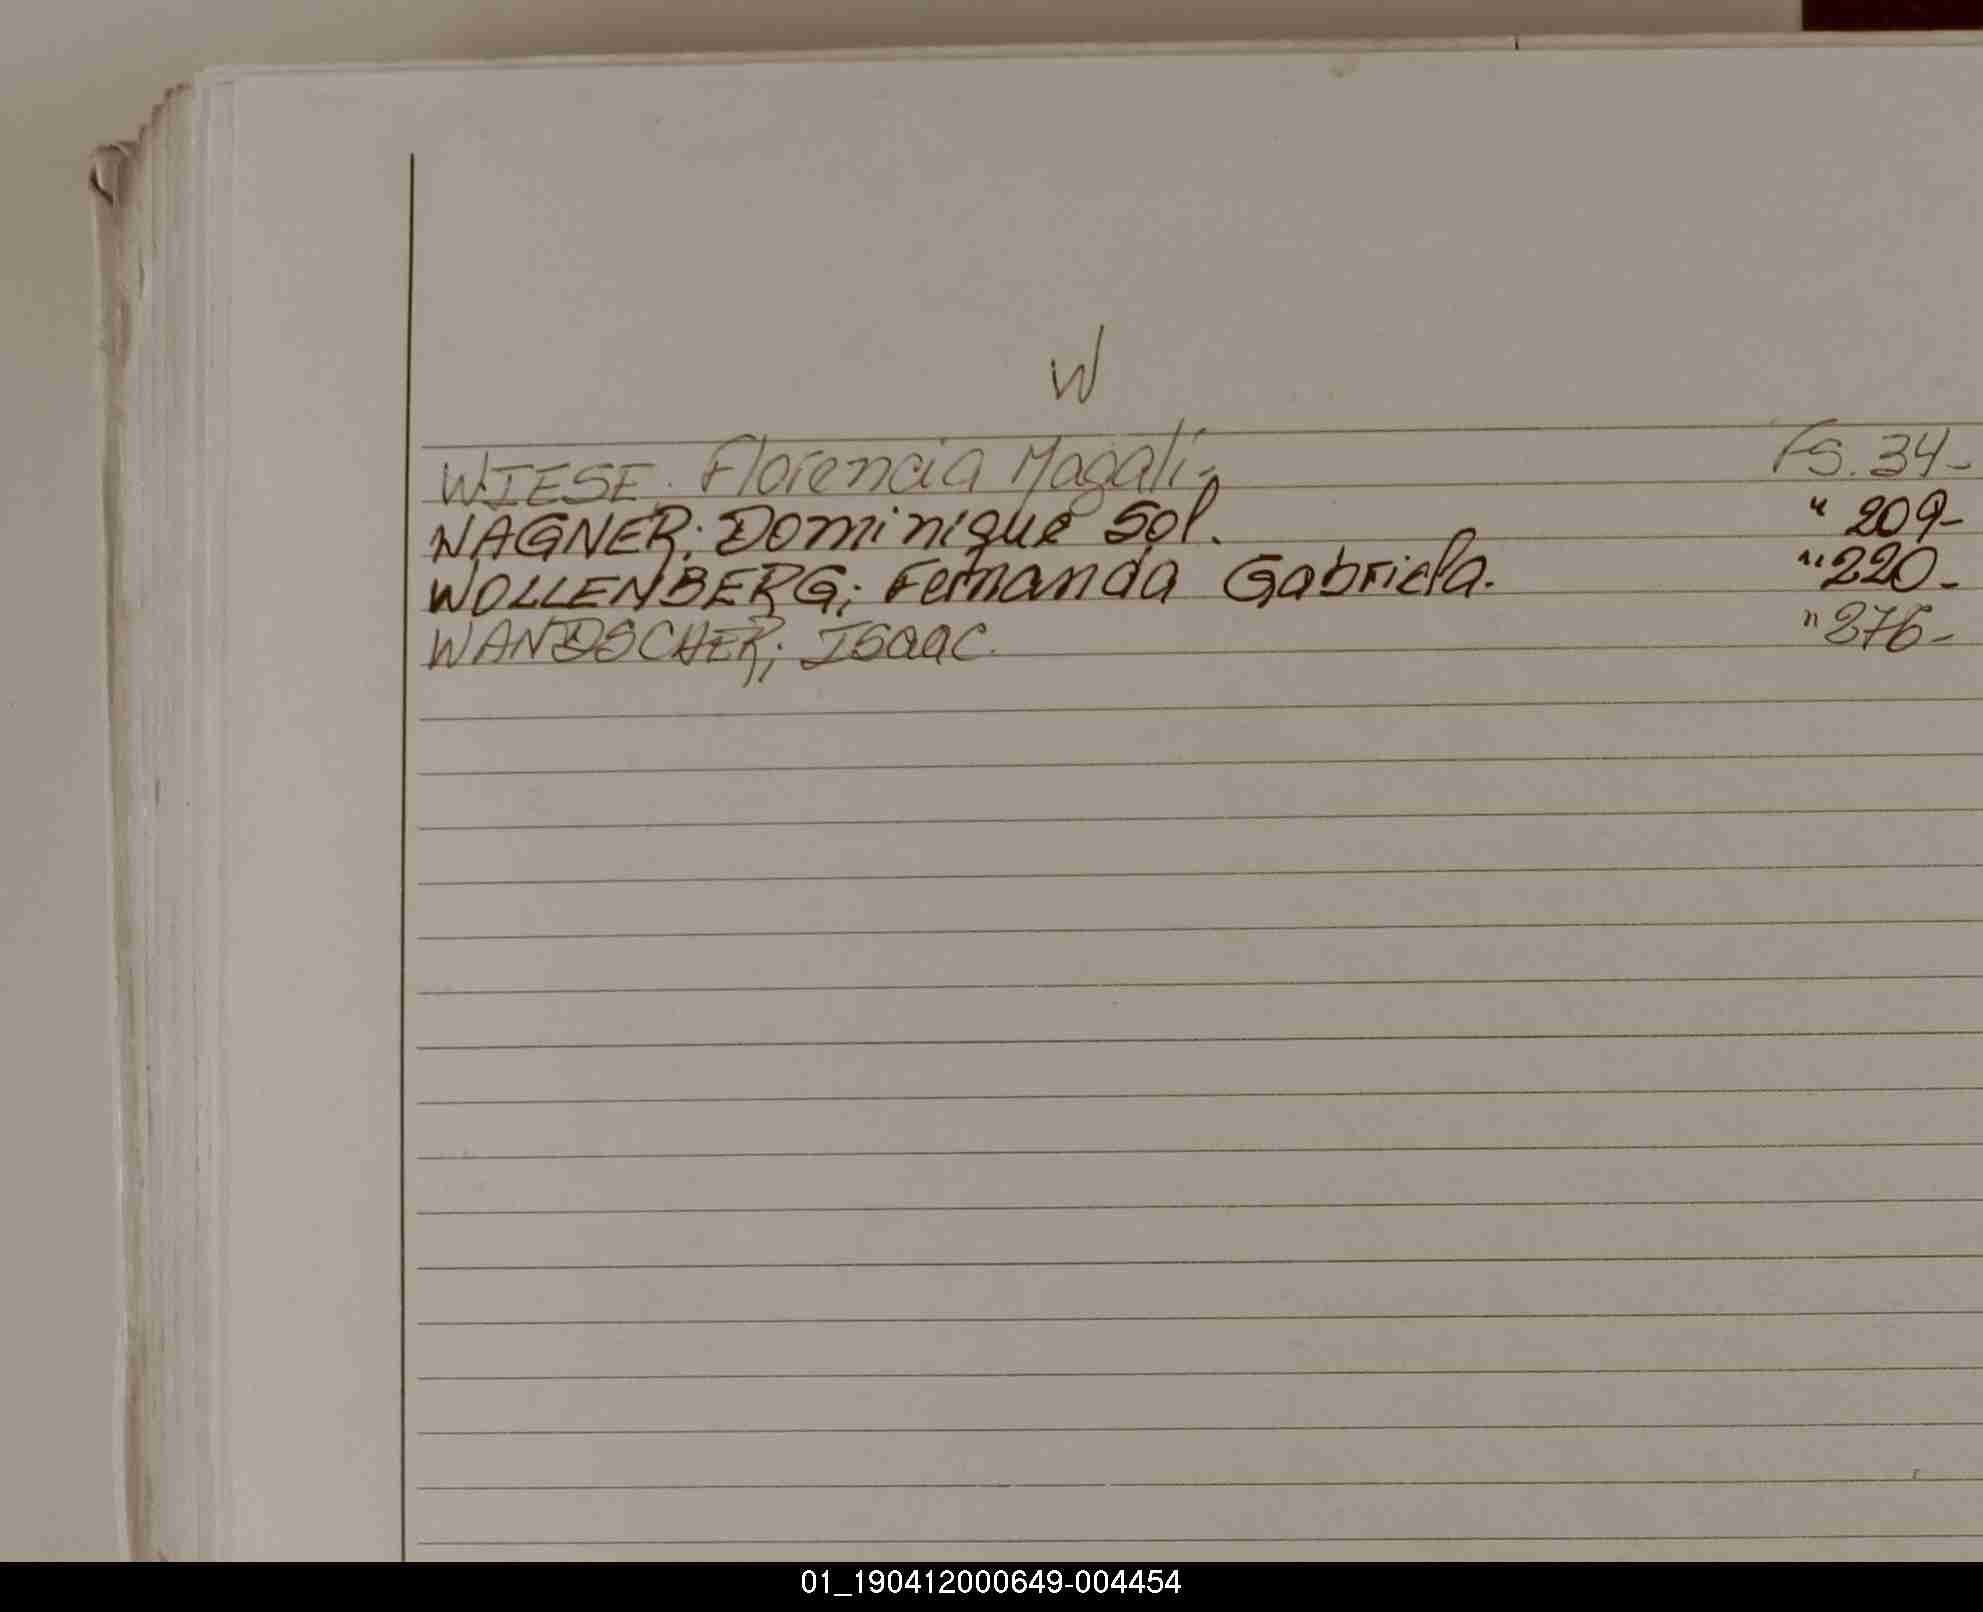 W
WIESE. Florencia Magalí- Fs. 34-
WAGNER; Dominique Sol. " 209-
WOLLENBERG; Fernanda Gabriela. " 220-
WANDSCHER; Isaac. " 276-
01_190412000649-004454